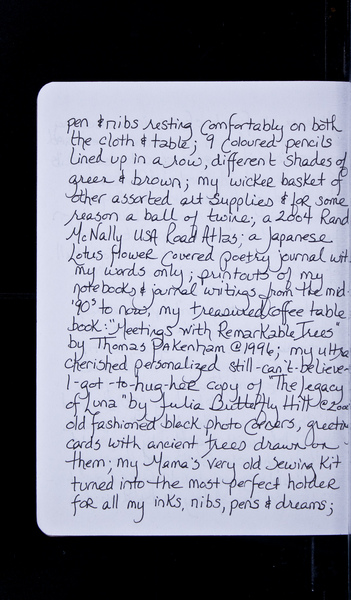 pen & nibs resting comfortably on both
the cloth & table; 9 coloured pencils
lined up in a row, different shades of
green & brown; my wicker basket of
other assorted art supplies & for some
reason a ball of twine; a 2004 Rand
McNally USA Road Atlas; a Japanese
Lotus flower covered poetry journal wit
my words only; printouts of my
notebooks & journal writings from the mid-
'90's to now, my treasured coffee table
book: "Meetings with Remarkable Trees"
by Thomas Pakenham @1996; my ultra
cherished personalized still-can't-believe-
I-got-to-hug-her copy of "The Legacy
of Luna" by Julia Butterfly Hill @200
old fashioned black photo corners, greetin
cards with ancient trees drawn on
them; my Mama's very old sewing kit
turned into the most perfect holder
for all my inks, nibs, pens & dreams;